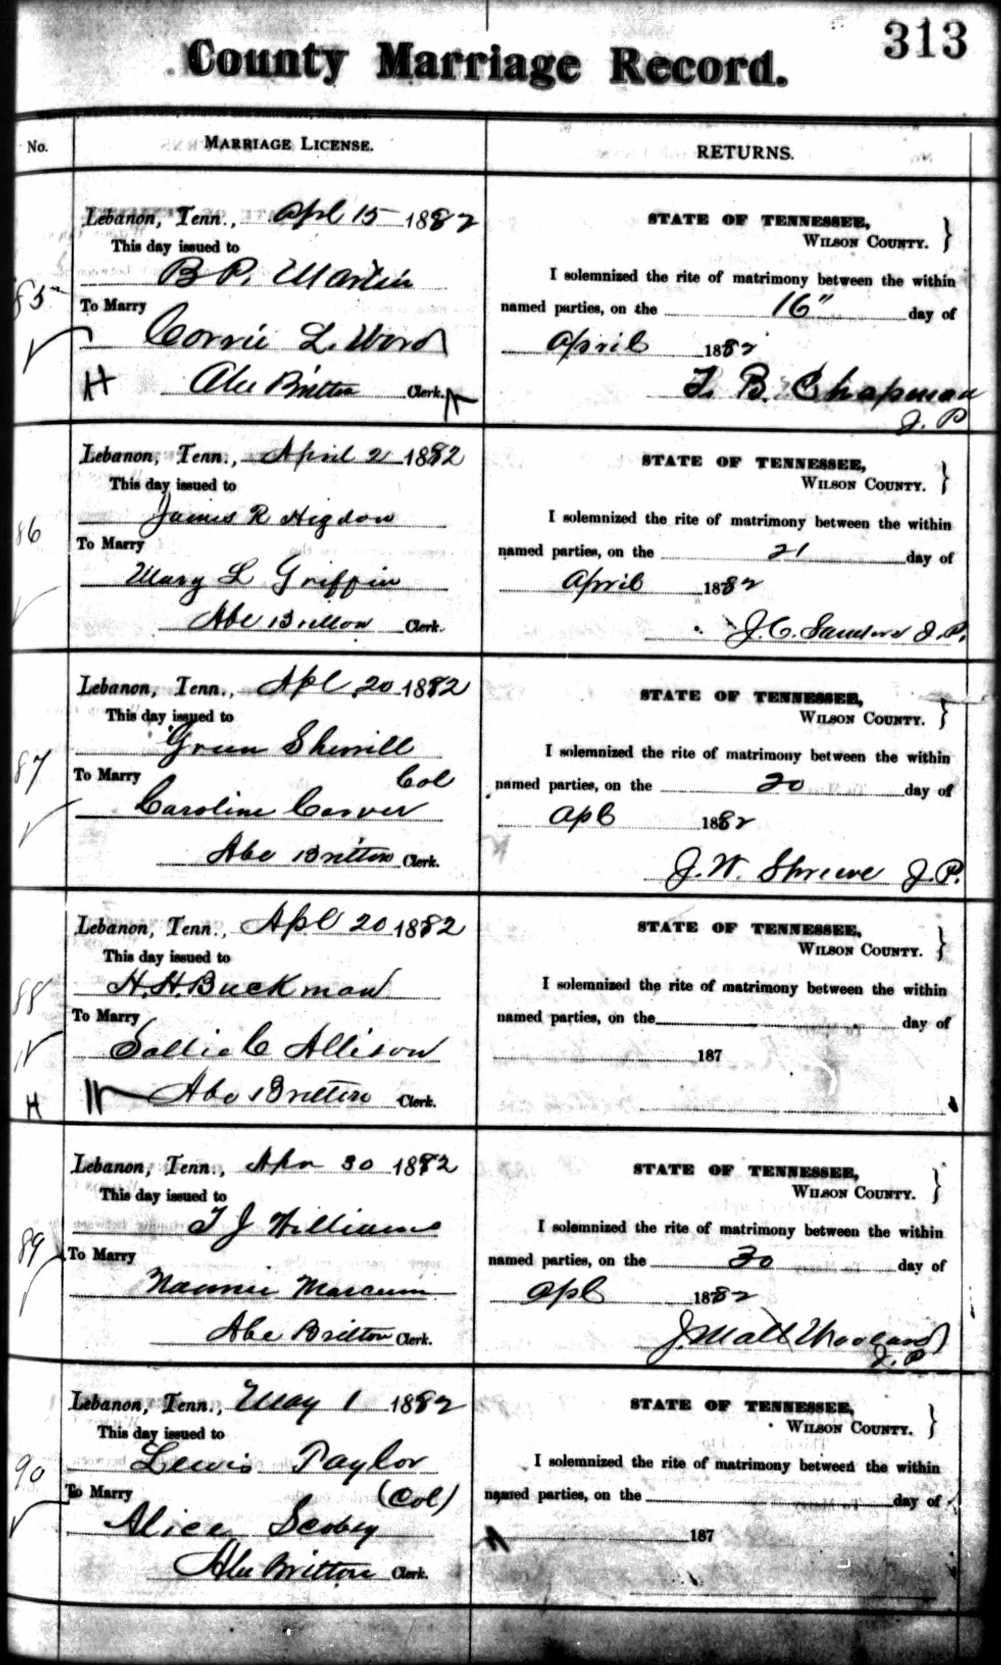 313
County Marriage Record.
No.
MARRIAGE LICENSE.
RETURNS.
85
Lebanon, Tenn., Apl 15 1882
This day issued to
B. P. Martin
To Marry
Corrie L. Word
H Abe Britton Clerk.
STATE OF TENNESSEE,
WILSON COUNTY. }
I solemnized the rite of matrimony between the within
named parties, on the 16" day of
April 1882
T. B. Chapman
J. P.
86
Lebanon, Tenn., April 2 1882
This day issued to
James R Higdon
To Marry
Mary L Griffin
Abe Britton Clerk.
STATE OF TENNESSEE,
WILSON COUNTY. }
I solemnized the rite of matrimony between the within
named parties, on the 21 day of
April 1882
J. C. Sanders J. P.
87
Lebanon, Tenn., Apl 20 1882
This day issued to
Green Sherrill
To Marry Col
Caroline Carver
Abe Britton Clerk.
STATE OF TENNESSEE,
WILSON COUNTY. }
I solemnized the rite of matrimony between the within
named parties, on the 20 day of
Apl 1882
J. W. Shreeve J. P.
88
Lebanon, Tenn., Apl 20 1882
This day issued to
H. H. Buckman
To Marry
Sallie C Allison
H Abe Britton Clerk.
STATE OF TENNESSEE,
WILSON COUNTY. }
I solemnized the rite of matrimony between the within
named parties, on the day of
187
89
Lebanon, Tenn., Apr 30 1882
This day issued to
T J Williams
To Marry
Nannie Marcum
Abe Britton Clerk.
STATE OF TENNESSEE,
WILSON COUNTY. }
I solemnized the rite of matrimony between the within
named parties, on the 30 day of
Apl 1882
J. Matt
J. P
90
Lebanon, Tenn., May 1 1882
This day issued to
Lewis Taylor
To Marry (Col)
Alice Scobey
Abe Britton Clerk.
STATE OF TENNESSEE,
WILSON COUNTY. }
I solemnized the rite of matrimony between the within
named parties, on the day of
187